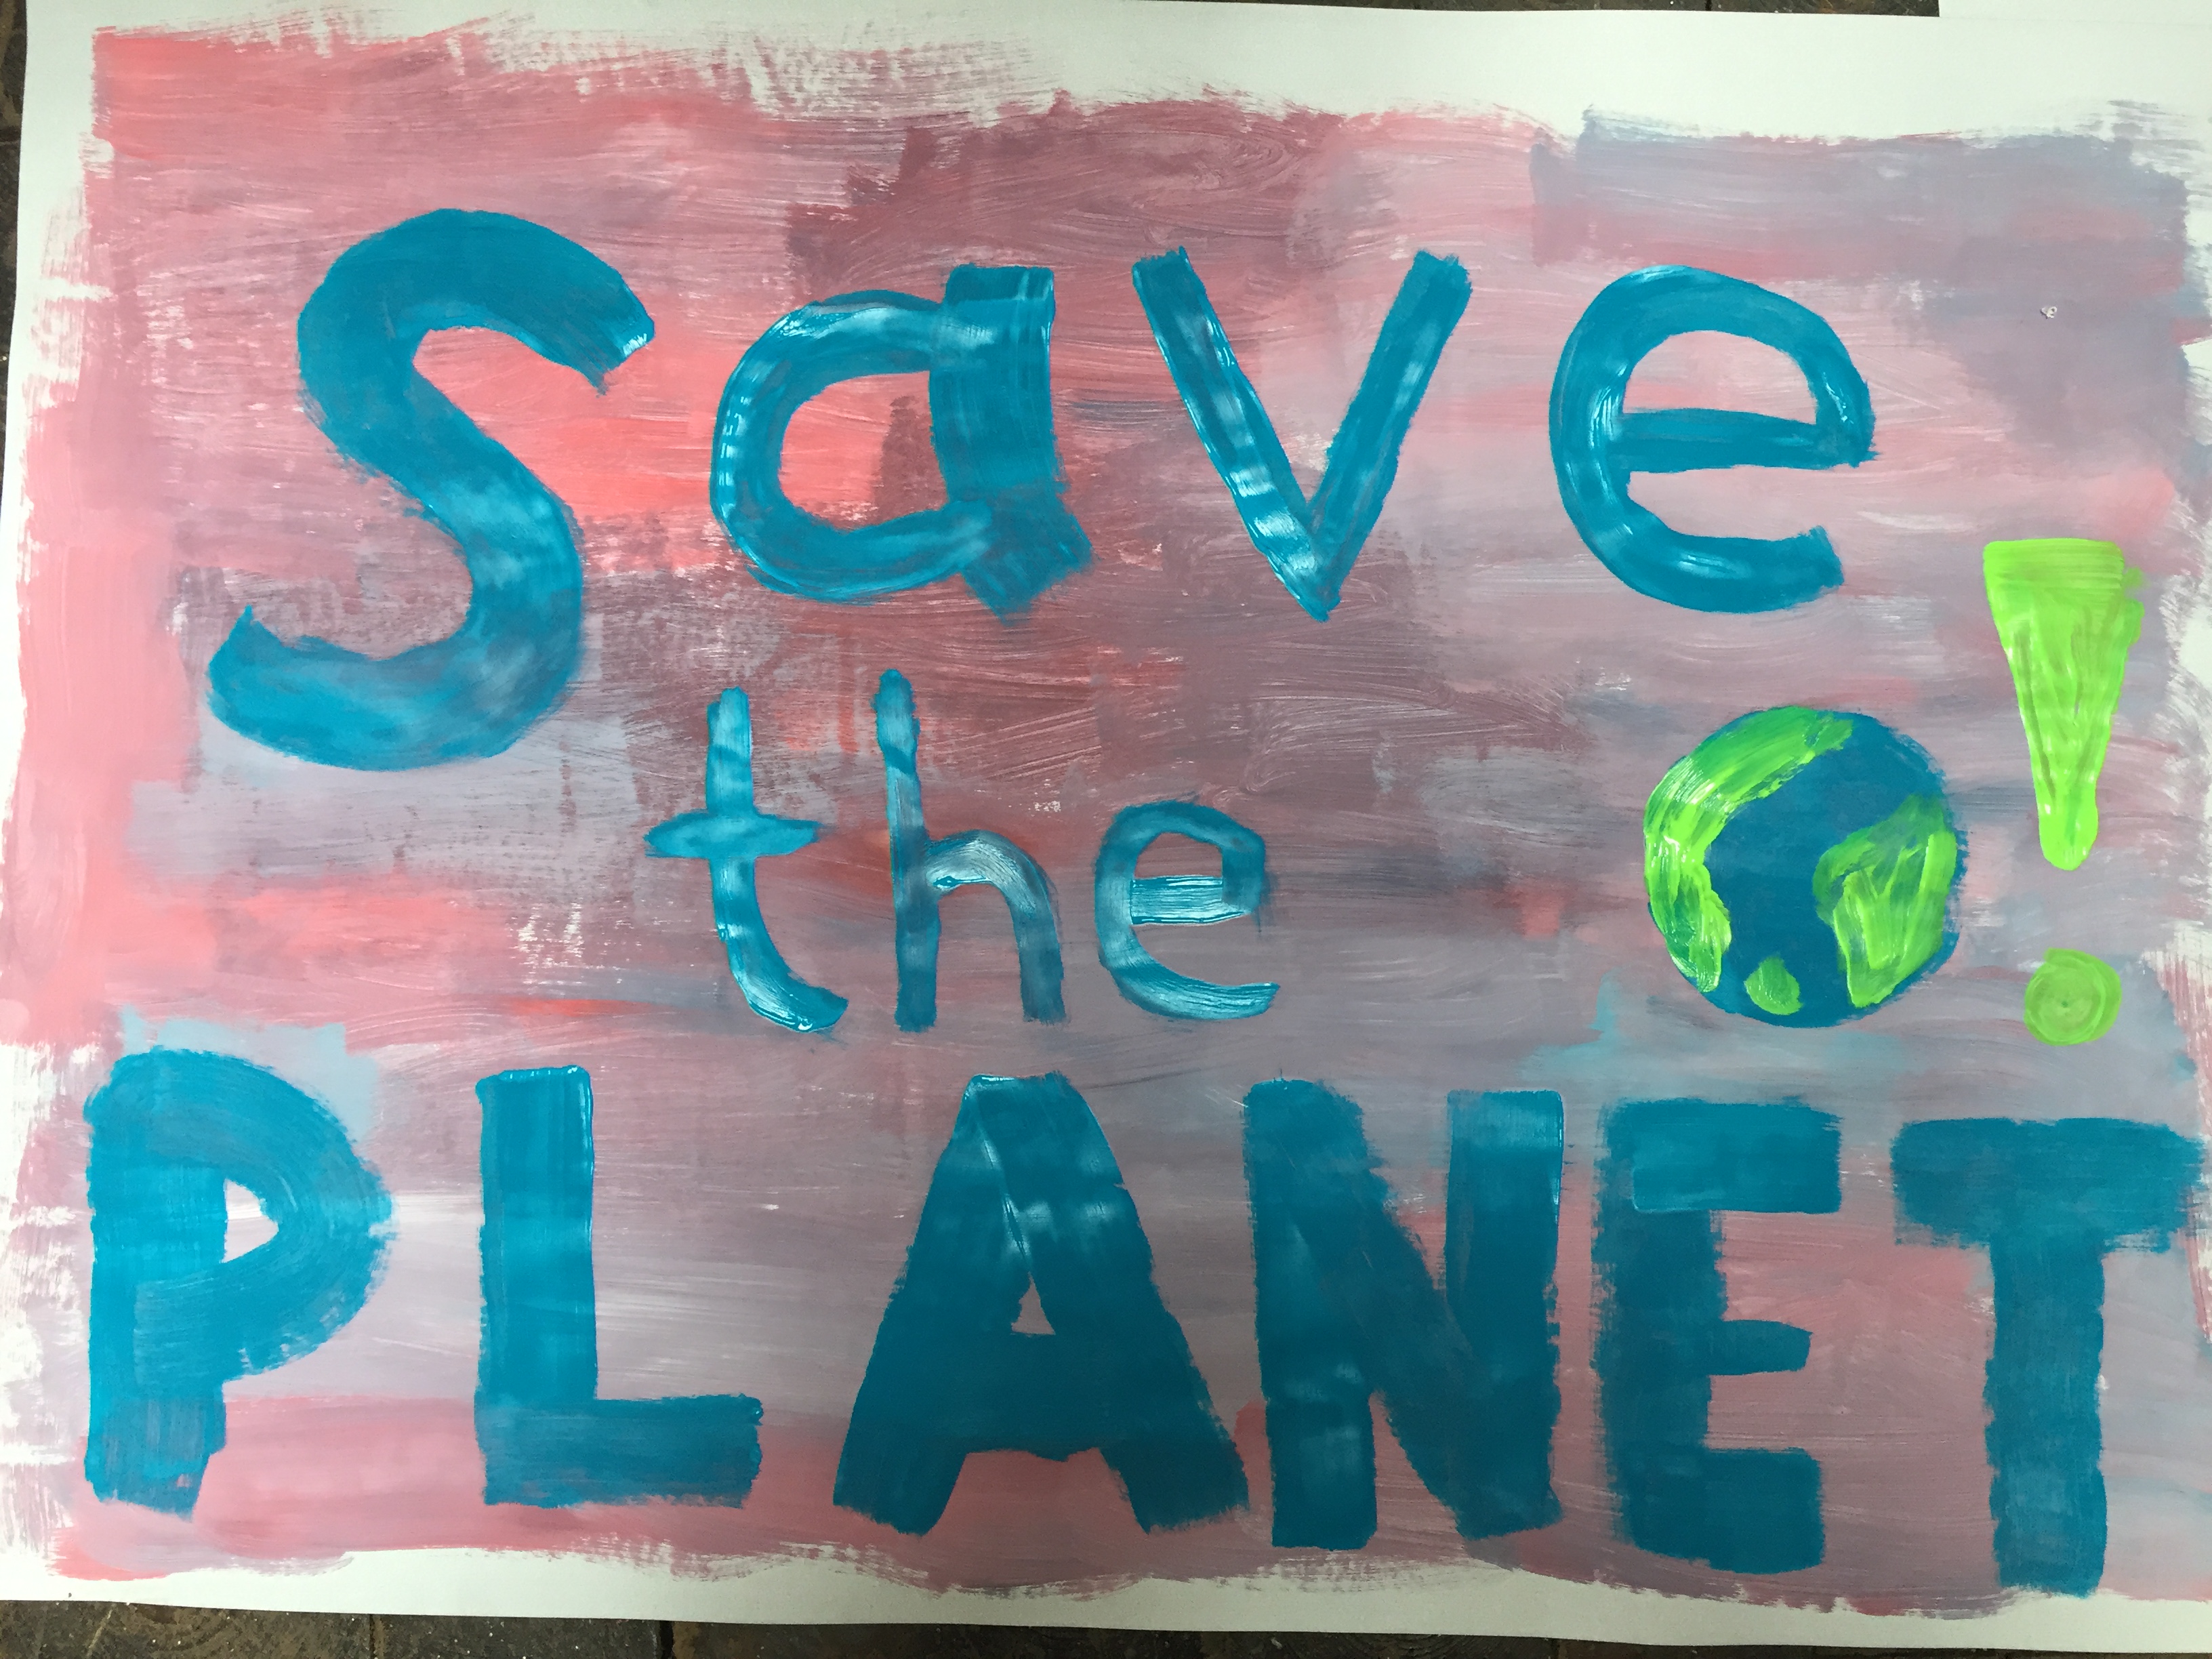 Save
the
PLANET!